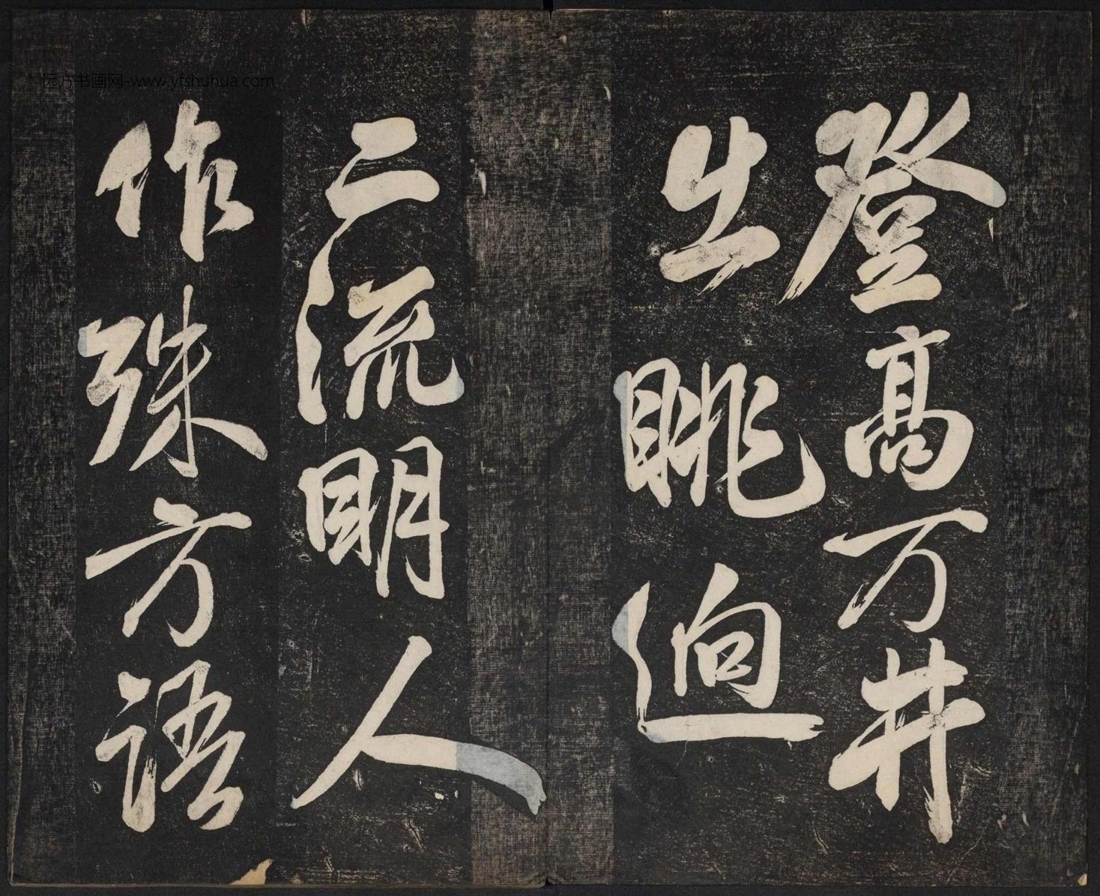 登高万井
出眺逈
二流明人
作殊方语
远方书画网-www.yfshuhua.com